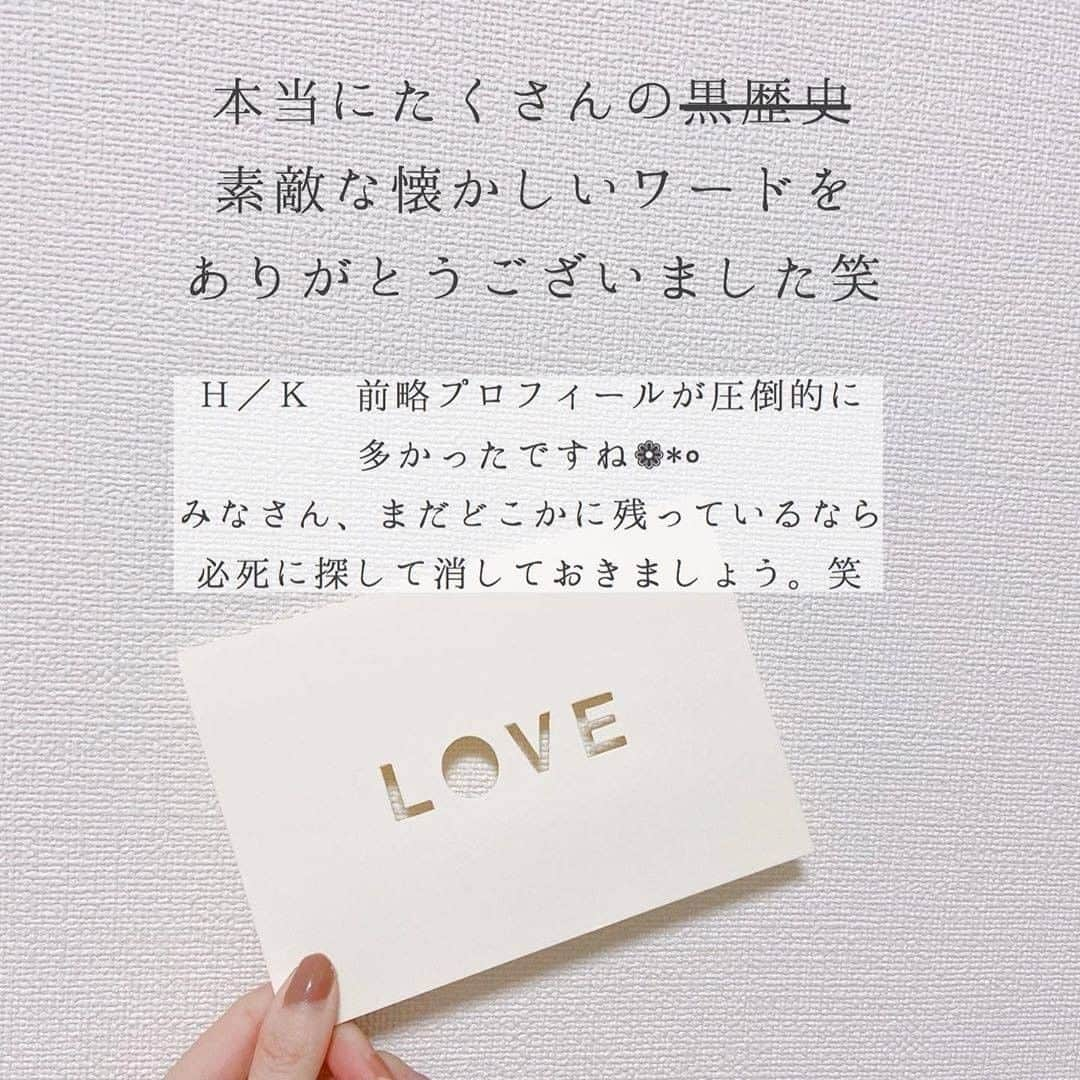 本当にたくさんの黒歴史
素敵な懐かしいワードを
ありがとうございました笑
H／K　前略プロフィールが圧倒的に
多かったですね❁*॰
みなさん、まだどこかに残っているなら
必死に探して消しておきましょう。笑
LOVE